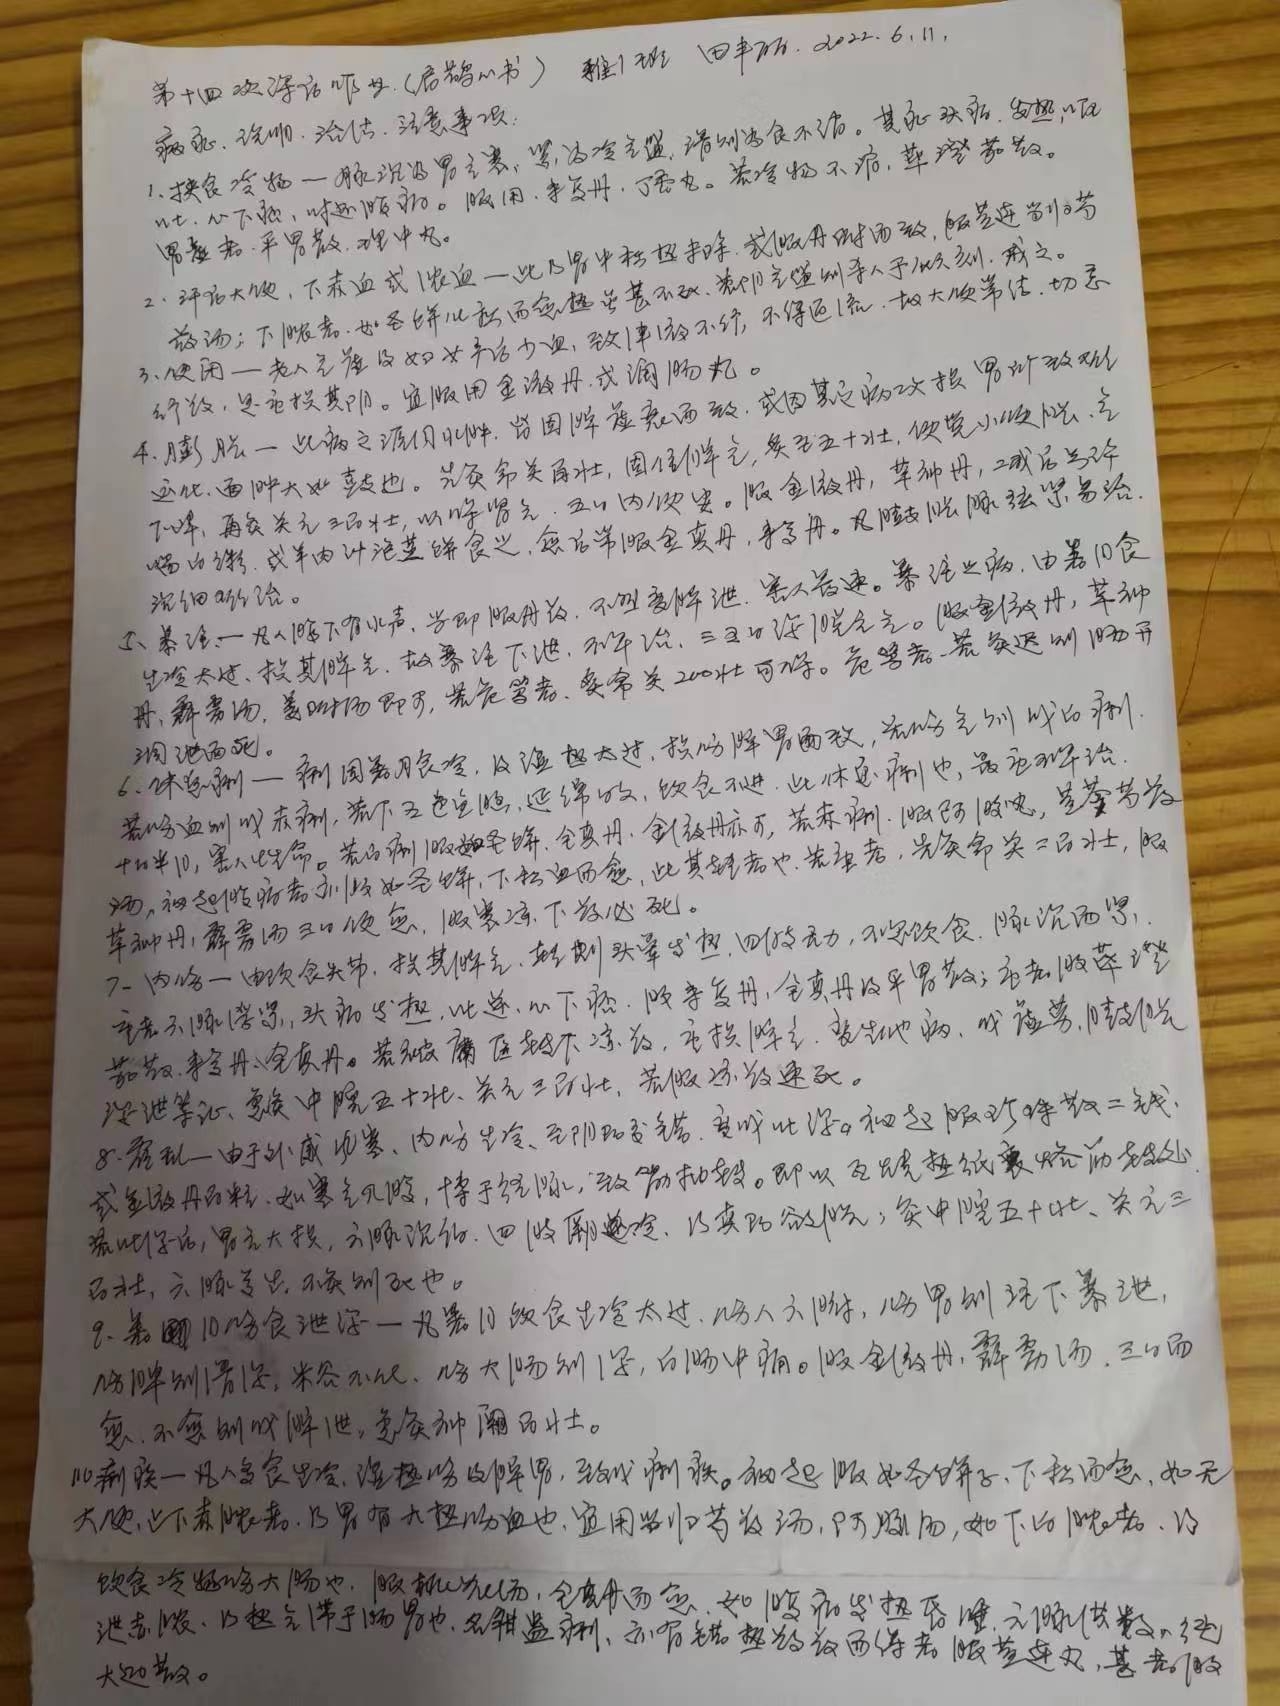 第十四次深访作业（扁鹊心书） 雅1班 田丰 2022.6.11.
病症、说明、治法、注意事项：
1、挟食冷物—脉沉为胃之寒，紧为冷气盛，滑则为食不消。其症头痛、发热，呕
吐、心下痞，时还腹痛。服用、来复丹、丁香丸。若冷物不消，荜澄茄散。
胃虚者、平胃散、理中丸。
2、溏后大便，下赤血或脓血—此乃胃中积热未除、或服丹附而致，服黄连当归芍
药汤；下脓者、如圣饼化积而愈热虽甚不死、若阴气盛则杀人于顷刻、戒之。
3、便闭—老人气虚及妇女产后少血，致津液不行，不得通流、故大便常结、切忌
行药，恐重损其阴。宜服用金液丹、或润肠丸。
4、膨胀—此病之源因水肿、皆因脾虚衰而致、或因其它病攻损胃所致难以
运化、面肿大如鼓也。先灸命关百壮，固住脾气，灸至五十壮，便觉小便长、气
下降，再灸关元三百壮，以保肾气、五日内便安。服金液丹，草神丹，减后只许
喝白粥、或羊肉汁泡蒸饼食之，愈后常服全真丹，来复丹。凡膨胀脉弦紧易治、
沉细难治。
5、暴注—凡人腹下有水声、当即服丹药、不然变脾泄、害人最速。暴注之病，由暑月食
生冷太过、损其脾气、故暴注下泄、不早治、三五日泻脱元气。服金液丹，草神
丹，霹雳汤，姜附汤即可，若危笃者、灸命关200壮可保。危笃者、若灸迟则肠开
洞泄而死。
6、休息痢—痢因暑月食冷，及湿热太过，损伤脾胃而致，若伤气则成白痢、
若伤血则成赤痢，若下五色鱼脑，延绵日久，饮食不进、此休息痢也，最重不早治、
十日半月，害人性命。若白痢服如圣饼、全真丹、金液丹亦可，若赤痢、服阿胶丸，黄芩芍药
汤，初起腹痛者亦服如圣饼、下积血而愈，此其轻者也、若重者，先灸命关二百壮，服
草神丹，霹雳汤三日便愈，服寒凉下药必死。
7、内伤—由饮食失节、损其脾气、轻则头晕发热，四肢无力，不思饮食、脉沉而紧、
重者六脉浮紧，头痛发热，吐逆、心下痞、服来复丹，全真丹及平胃散；重者服荜澄
茄散、来复丹、全真丹。若被庸医转下凉药，重损脾气、变生他病、成虚劳、膨胀
泻泄等证、急灸中脘五十壮、关元三百壮，若服凉药速死。
8、霍乱—由于外感风寒、内伤生冷、致阴阳交错、变成吐泻。初起服珍珠散二钱、
或金液丹百粒、如寒气入腹，博于经脉，致筋抽转。即以瓦烧热纸裹烙筋转处、
若吐泻后，胃气大损，六脉沉细、四肢厥逆冷，乃真阳欲脱；灸中脘五十壮、关元三
百壮，六脉复生，不灸则死也。
9、暑月伤食泄泻—凡暑月饮食生冷太过、伤人六腑，伤胃则注下暴泄、
伤脾则滑泻，米谷不化、伤大肠则泻，白肠中痛。服金液丹，霹雳汤、三日而
愈、不愈则成脾泄，急灸神阙百壮。
10、痢疾—凡人多食生冷、湿热伤及脾胃，致成痢疾。初起服如圣饼子、下积而愈、如无
大便、只下赤脓者、乃胃有大热伤血也、宜用当归芍药汤，阿胶汤，如下白脓者、乃
饮食冷物伤大肠也，服桃花汤，全真丹而愈、如腹痛发热昏睡，六脉洪数，纯
泄赤脓、乃热气滞于肠胃也、名疳蛊痢、亦有错热药而得者服黄连丸，甚者服
大通散。